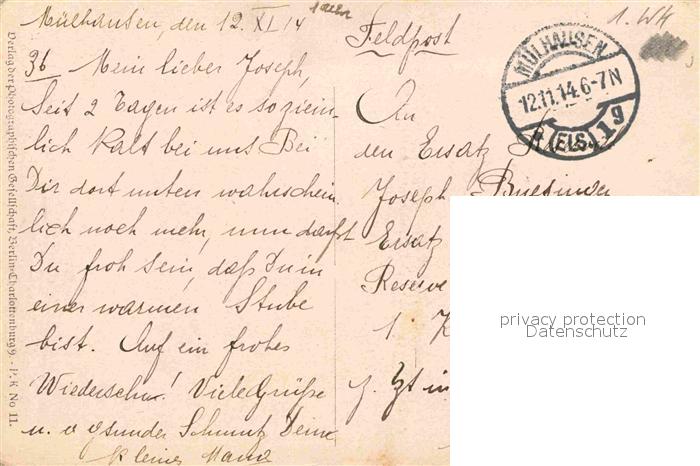 Mülhausen, den 12. XI. 14
1. WK
Feldpost
MÜLHAUSEN
12.11.14.6-7N
(ELS.) 1g
36 Mein lieber Joseph,
Seit 2 Tagen ist es so ziem-
lich kalt bei uns Bei
Dir dort unten wahrschein
lich noch mehr, nun darfst
Du froh sein, daß Du in
einer warmen Stube
bist. Auf ein frohes
Wiedersehn! Viele Grüße
u. e gsunder Schmutz Deine
kleine
An
den Ersatz
Joseph
Ersatz
Reserve
1. K
z. Zt in
Verlag der Photographischen Gesellschaft, Berlin-Charlottenburg 9. - P. K No 11.
privacy protection
Datenschutz